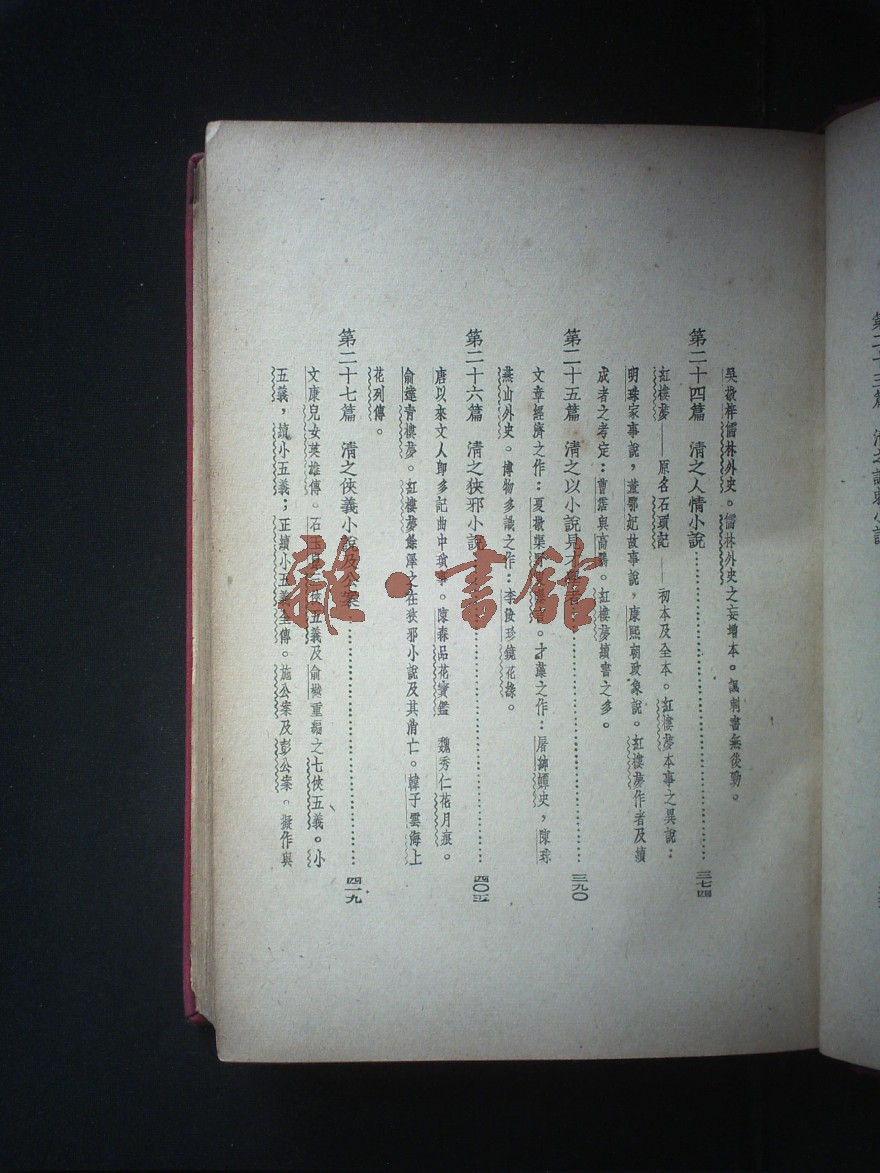 吳敬梓儒林外史。儒林外史之妄增本。諷刺書無後勁。
第二十四篇 清之人情小說……三七四
紅樓夢——原名石頭記——初本及全本。紅樓夢本事之異說：
明珠家事說，董鄂妃故事說，康熙朝政象說。紅樓夢作者及續
成者之考定：曹霑與高鶚。紅樓夢續書之多。
第二十五篇 清之以小說見才學者……三九〇
文章經濟之作：夏敬渠野叟曝言。才藻之作：屠紳蟫史，陳球
燕山外史。博物多識之作：李汝珍鏡花緣。
第二十六篇 清之狹邪小說……四〇
唐以來文人卽多記曲中瑣事。陳森品花寶鑑 魏秀仁花月痕。
俞達青樓夢。紅樓夢餘澤之在狹邪小說及其消亡。韓子雲海上
花列傳。
第二十七篇 清之俠義小說及公案……四一九
文康兒女英雄傳。石玉崑三俠五義及俞樾重編之七俠五義。小
五義，續小五義；正續小五義全傳。施公案及彭公案。擬作與
雜·書館